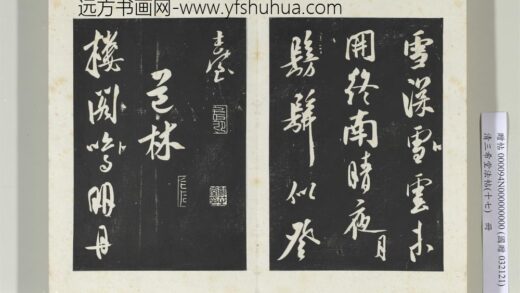 远方书画网-www.yfshuhua.com
雪深雪雲未
開終南晴夜月
髣髴似登
林
樓閣鳴明丹
贈帖 000094N000000000 (國贈 032121)
清三希堂法帖(十七) 冊